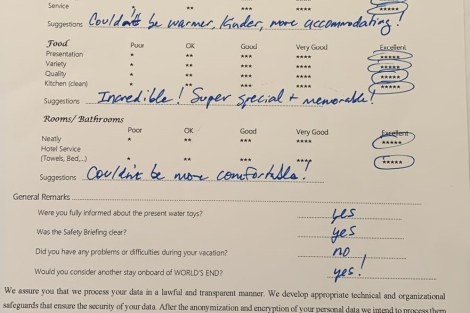 Service ** *** **** *****
Suggestions Couldn't be warmer, kinder, more accommodating!
Food Poor OK Good Very Good Excellent
Presentation * ** *** **** *****
Variety * ** *** **** *****
Quality * ** *** **** *****
Kitchen (clean) * ** *** **** *****
Suggestions Incredible! Super special + memorable!
Rooms/ Bathrooms
Poor OK Good Very Good Excellent
Neatly * ** *** **** *****
Hotel Service
(Towels, Bed,...) * ** *** **** *****
Suggestions Couldn't be more comfortable!
General Remarks
Were you fully informed about the present water toys? yes
Was the Safety Briefing clear? yes
Did you have any problems or difficulties during your vacation? no
Would you consider another stay onboard of WORLD'S END? yes!
We assure you that we process your data in a lawful and transparent manner. We develop appropriate technical and organizational
safeguards that ensure the security of your data. After the anonymization and encryption of your personal data we intend to process them